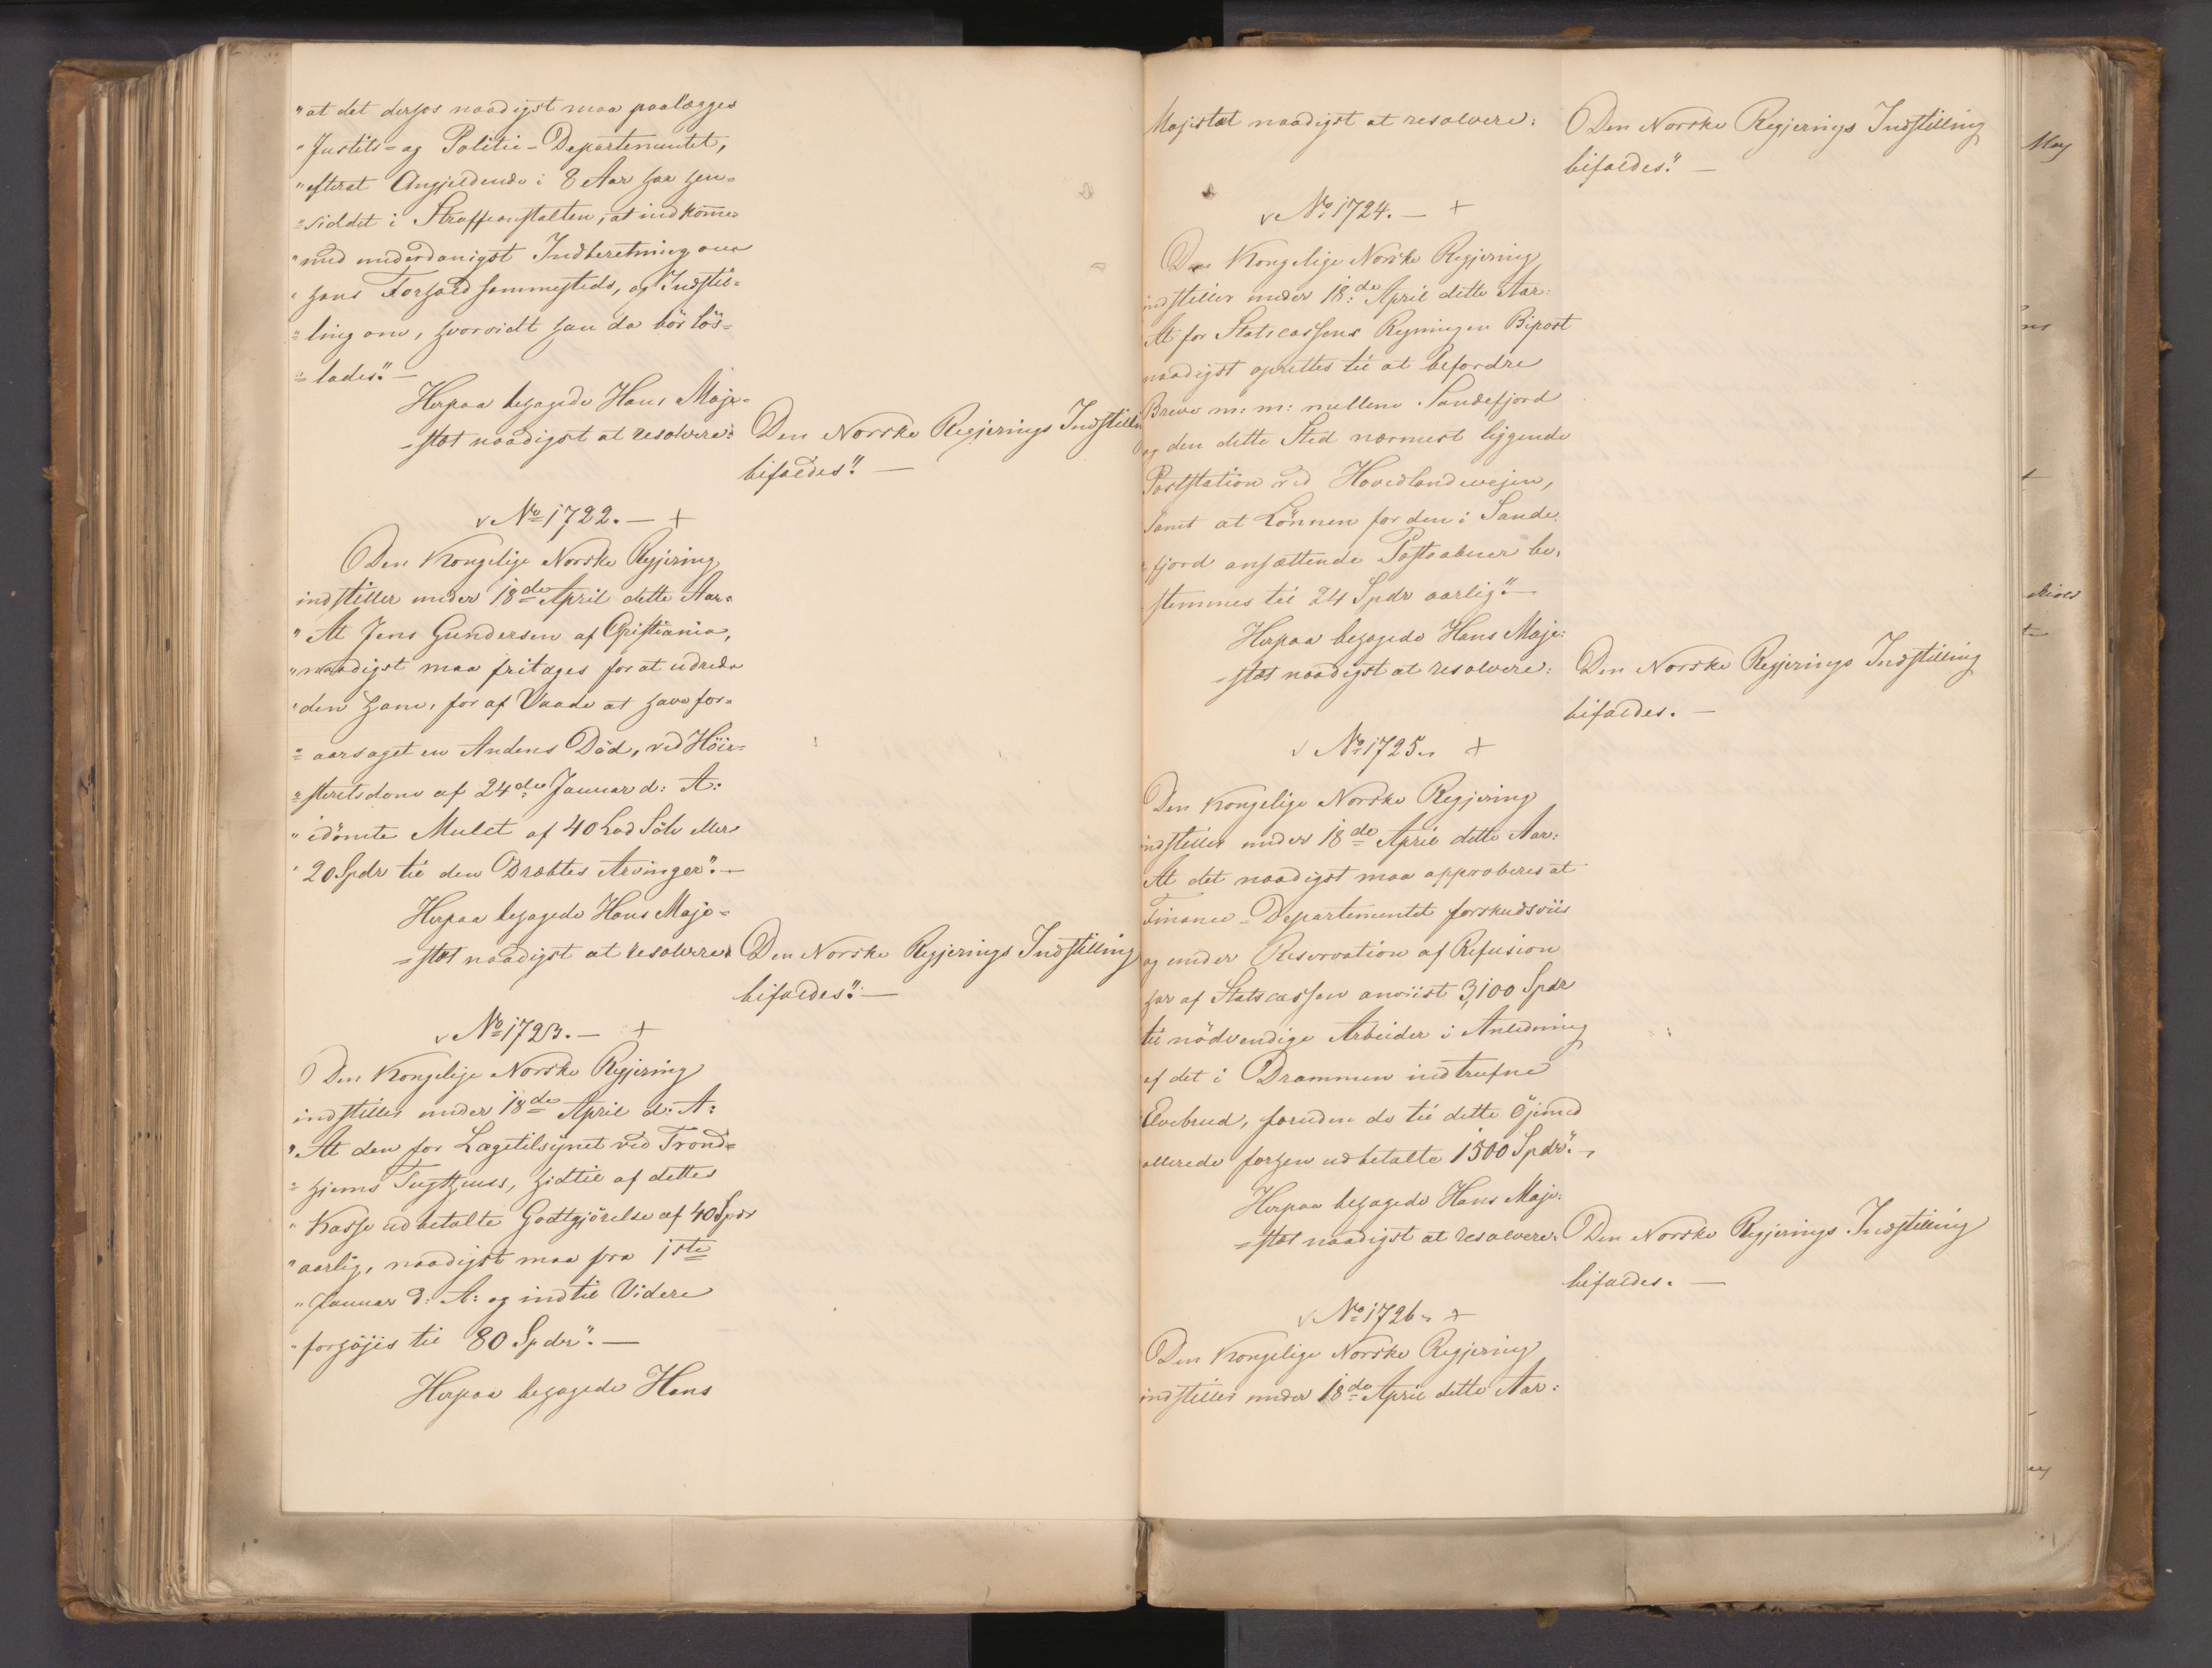 "at det derhos naadigst maa paalægges
"Justits- og Politie-Departementet,
"efterat Angjeldende i 8 Aar har hen-
"siddet i Straffeanstalten, at indkomme
"med underdanigst Indberetning om
"hans Forhold sammesteds, og Indstil-
"ling om, hvorvidt han da bör lös-
"lades". —
Herpaa behagede Hans Maje-
-stæt naadigst at resolvere: Den Norske Regjerings Indstilling
bifaldes". —
No 1722. — +
Den Kongelige Norske Regjering
indstiller under 18de April dette Aar:
"At Jens Gundersen af Christiania,
"naadigst maa fritages for at udrede
"den ham, for af Vaade at have for-
"aarsaget en Andens Död, ved Höie-
"steretsdom af 24de Januar d: A:
"idömte Mulct af 40 Lod Sölv eller
"20 Spdr til den Dræbtes Arvinger". —
Herpaa behagede Hans Maje-
-stæt naadigst at resolvere: Den Norske Regjerings Indstilling
bifaldes". —
No 1723. — +
Den Kongelige Norske Regjering
indstiller under 18de April d: A:
"At den for Lægetilsynet ved Trond-
"hjems Tugthuus, hidtil af dettes
"Kasse udbetalte Godtgjörelse af 40 Spdr
"aarlig, naadigst maa fra 1ste
"Januar d: A: og indtil Videre
"forhöjes til 80 Spdr". —
Herpaa behagede Hans
Majestæt naadigst at resolvere: Den Norske Regjerings Indstilling
bifaldes". —
No 1724. — +
Den Kongelige Norske Regjering
indstiller under 18de April dette Aar:
At for Statscassens Regning en Bipost
naadigst oprettes til at befordre
Breve m: m: mellem Sandefjord
og den dette Sted nærmest liggende
Poststation ved Hovedlandevejen,
samt at Lönnen for den i Sande-
fjord ansættende Postaabner be-
stemmes til 24 Spdr aarlig". —
Herpaa behagede Hans Maje-
-stæt naadigst at resolvere: Den Norske Regjerings Indstilling
bifaldes. —
No 1725. +
Den Kongelige Norske Regjering
indstiller under 18de April dette Aar:
At det naadigst maa approberes at
Finance-Departementet forskudsviis
og under Reservation af Refusion
har af Statscassen anviist 3,100 Spdr
til nödvendige Arbeider i Anledning
af det i Drammen indtrufne
Elvebrud, foruden de til dette Öjemed
allerede forhen udbetalte 1500 Spdr". —
Herpaa behagede Hans Maje-
-stæt naadigst at resolvere: Den Norske Regjerings Indstilling
bifaldes. —
No 1726. +
Den Kongelige Norske Regjering
indstiller under 18de April dette Aar: